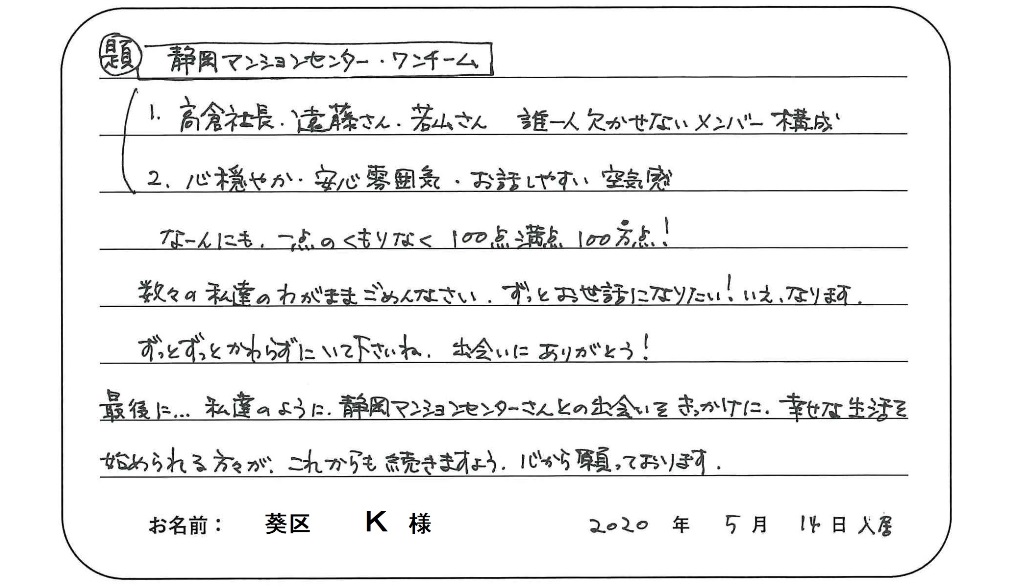 題 静岡マンションセンター・ワンチーム
1. 高倉社長・遠藤さん・若山さん 誰一人欠かせないメンバー構成
2. 心穏やか・安心雰囲気・お話しやすい空気感
なーんにも、一点のくもりなく 100点満点 100万点!
数々の私達のわがままごめんなさい。ずっとお世話になりたい!いえ、なります。
ずっとずっとかわらずにいて下さいね。出会いにありがとう!
最後に… 私達のように、静岡マンションセンターさんとの出会いをきっかけに、幸せな生活を
始められる方々が、これからも続きますよう、心から願っております。
お名前: 葵区 K 様 2020 年 5月 14日入居